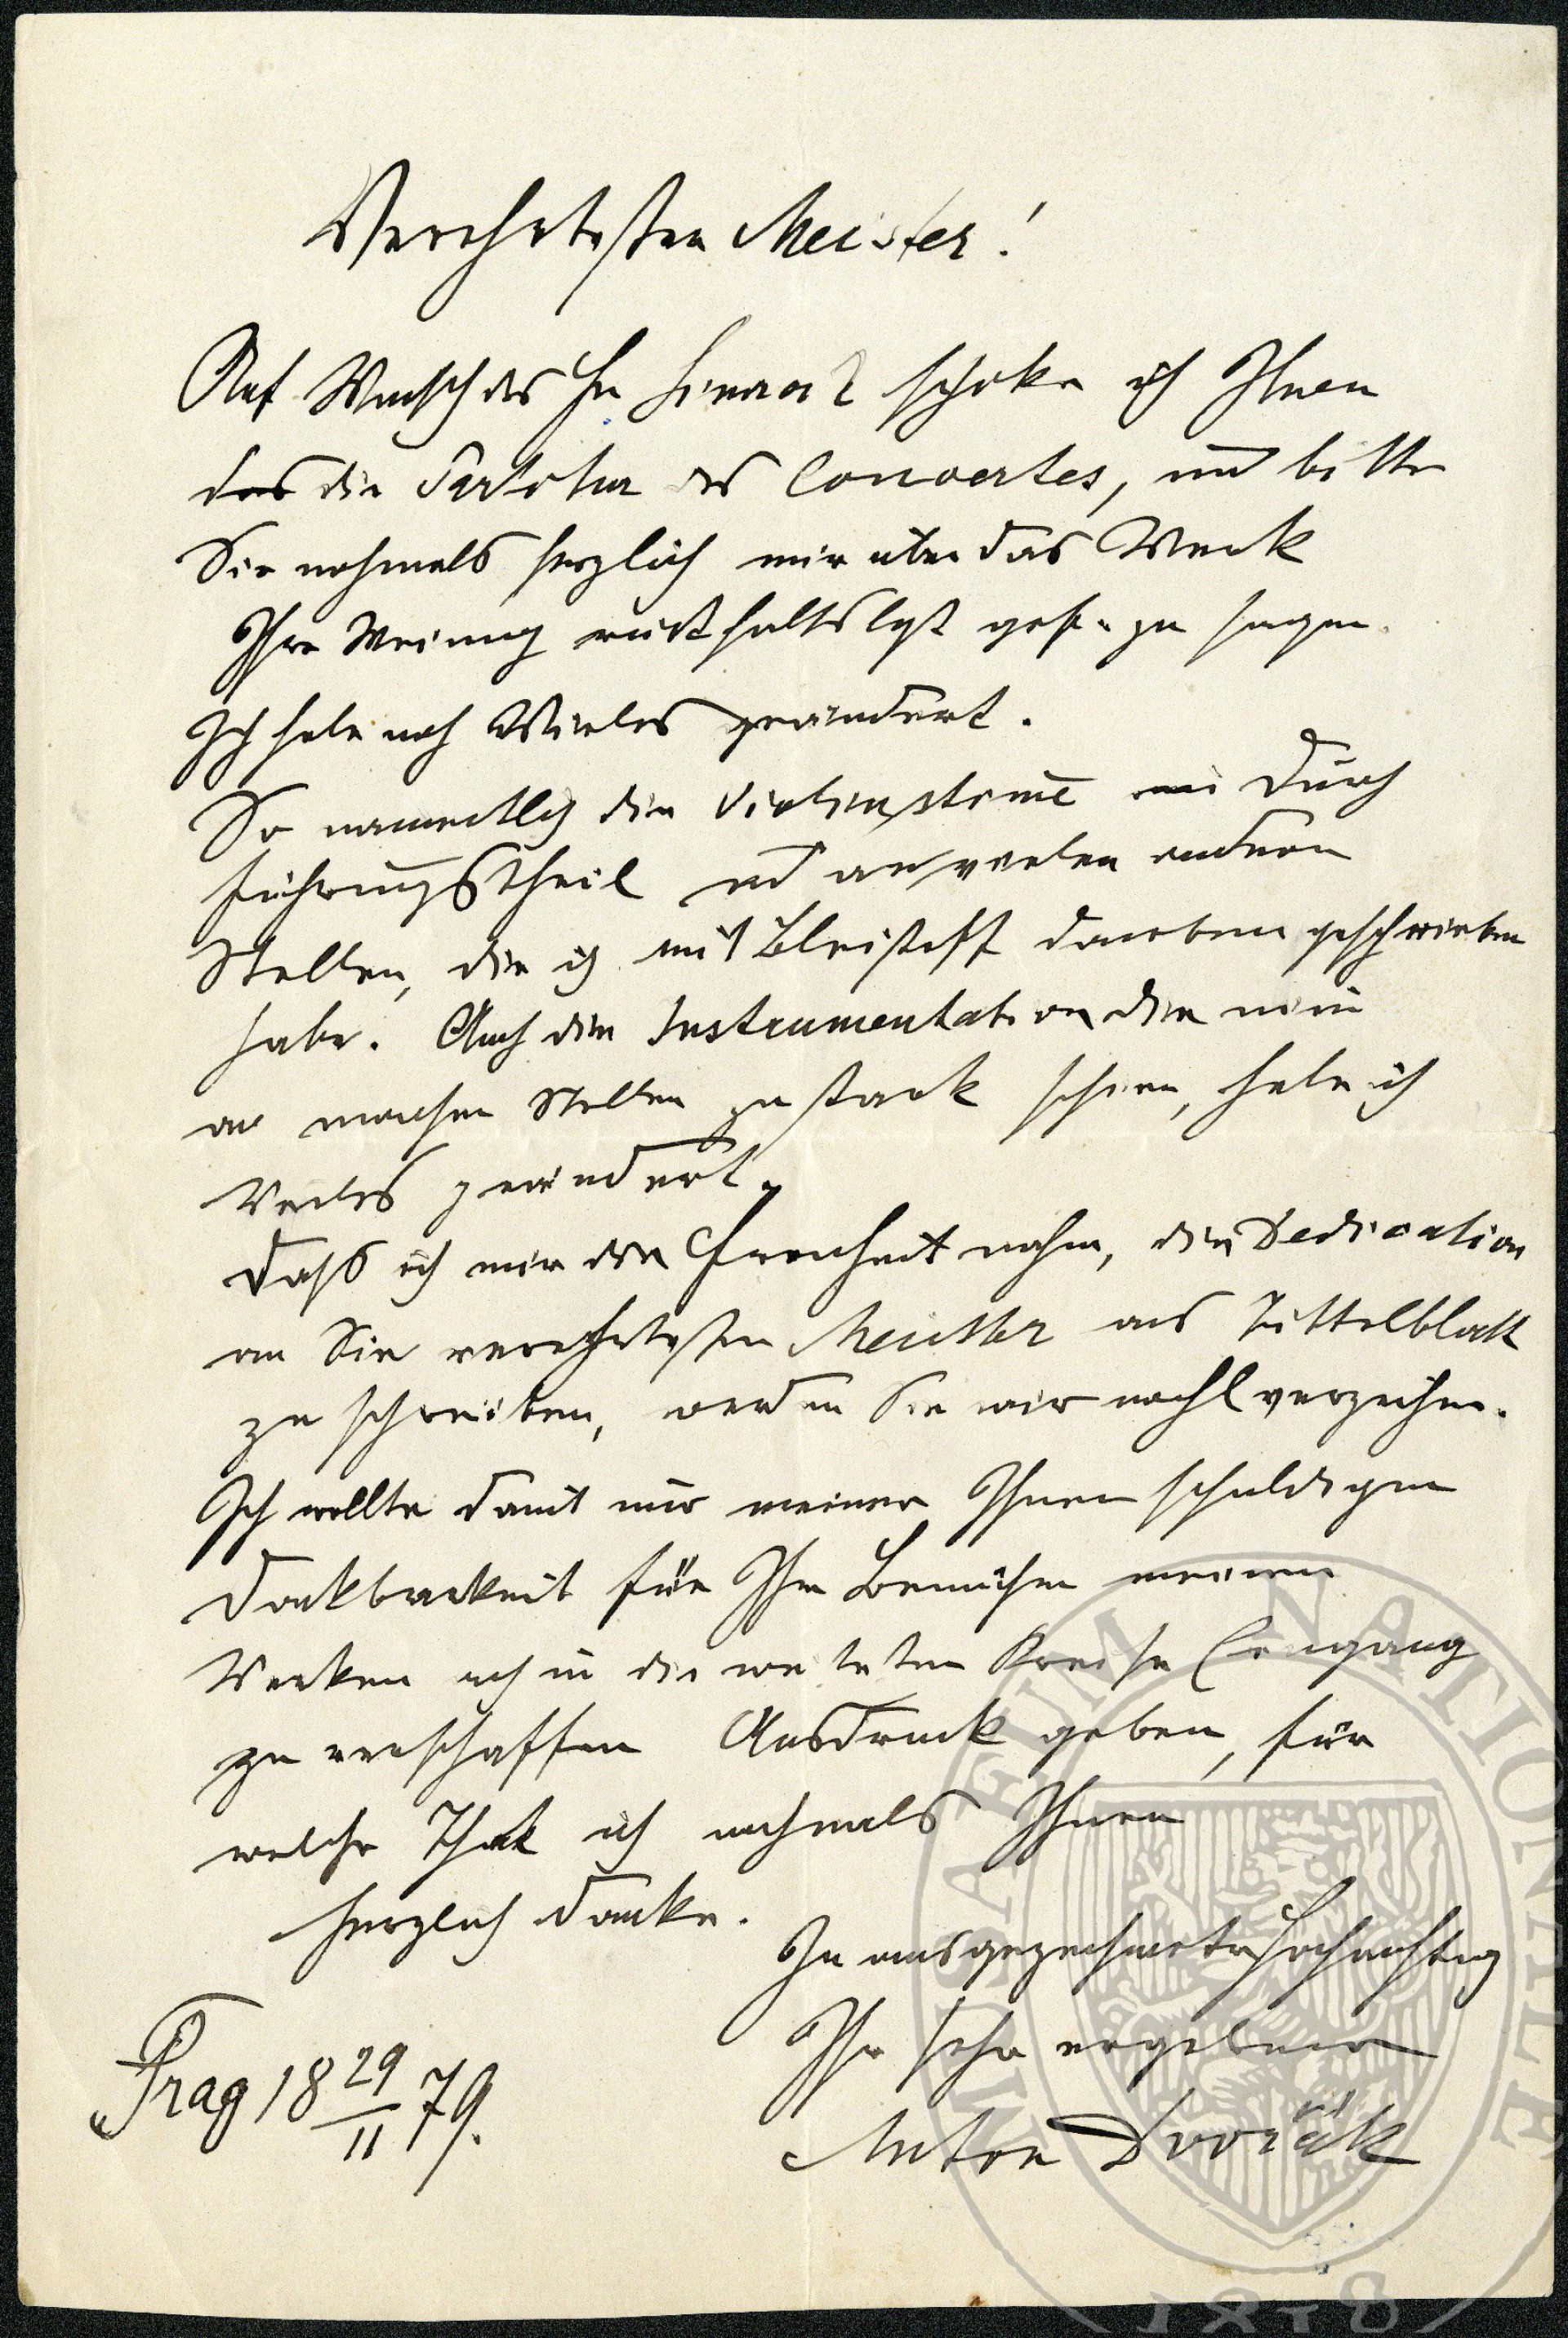 Verehrtester Meister!
Auf Wunsch des Hn Simrock schicke ich Ihnen
das die Partitur des Concertes, und bitte
Sie nochmals herzlich mir über das Werk
Ihre Meinung rückhaltslost gefl. zu sagen.
Ich habe noch Vieles geändert.
So namentlich die Violinstime im Durch
führungstheil und an vielen andern
Stellen, die ich mit Bleistift daneben geschrieben
habe. Auch die Instrumentation die mir
an manchen Stellen zu stark schien, habe ich
Vieles geändert.
Daß ich mir die Freiheit nahm, die Dedication
an Sie verehrtester Meister ans Tittelblatt
zu schreiben, werden Sie mir wohl verzeihen.
Ich wollte damit nur meiner Ihnen schuldigen
Dankbarkeit für Ihr Bemühen meinen
Werken auch in die weitesten Kreise Eingang
zu verschaffen Ausdruck geben, für
welche That ich nochmals Ihnen
herzlich danke.
In ausgezeichneter Hochachtung
Ihr sehr ergebener
Anton Dvořák
Prag 18 29/11 79.
MUSAEUM NATIONALE
1818